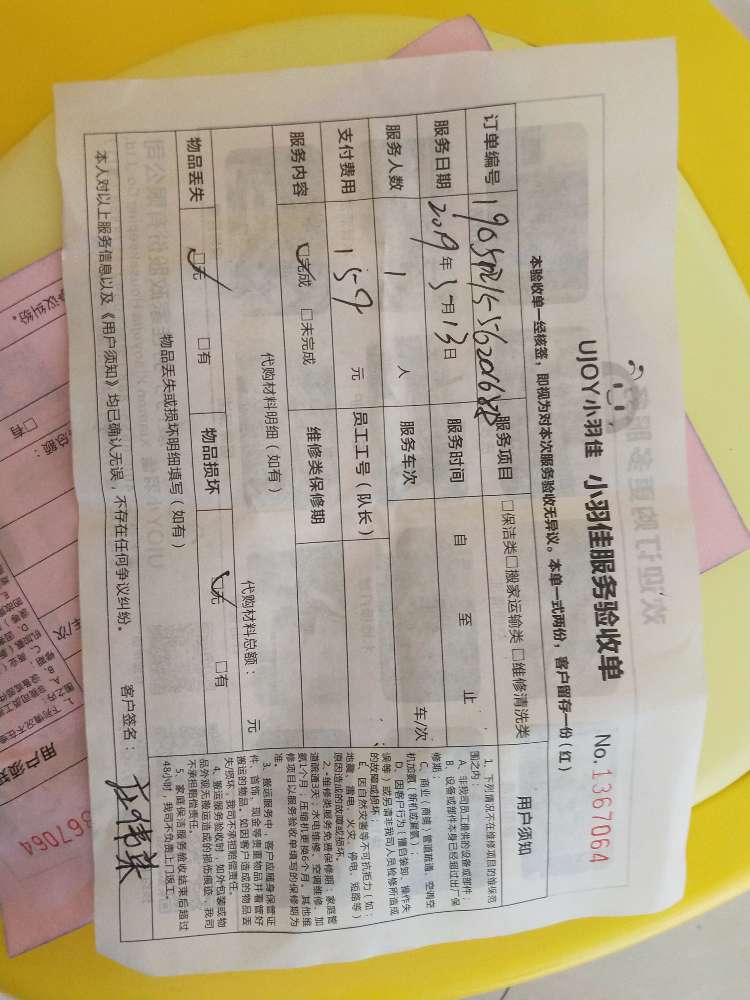 UJOY小羽佳 小羽佳服务验收单
No. 1367064
本验收单一经核签，即视为对本次服务验收无异议。本单一式两份，客户留存一份（红）
订单编号
服务项目 □保洁类□搬家运输类□维修清洗类
用户须知
服务日期 2019年5月13日 服务时间 自 至 止
服务人数 1 人 服务车次 车/次
支付费用 159 元 员工工号（队长）
服务内容 □完成 □未完成 维修类保修期
代购材料明细（如有） 代购材料总额： 元
物品丢失 □无 □有 物品损坏 □无 □有
物品丢失或损坏明细填写（如有）
本人对以上服务信息以及《用户须知》均已确认无误，不存在任何争议纠纷。 客户签名：
1、下列情况不在维修项目的维保范
围之内：
A、非我司员工提供的设备或部件；
B、设备或部件本身已经超过出厂保
修期；
C、商业（商维）管道疏通、空调空
机加氟（新机或漏氟）；
D、因客户行为（擅自装卸、操作失
误等）或另请非我司人员检修所造成
的故障或损坏。
E、因自然灾害等不可抗拒力（如：
地震、雷电、火灾、停电、短路等）
原因造成的故障或损坏。
2、维修类服务免费保修期：家庭管
道疏通3天；水电维修、空调维修、加
氨1个月；压缩机更换6个月。其他维
修项目以服务验收单填写的保修期为
准。
3、搬运服务中，客户应随身保管证
件、首饰、现金等贵重物品并看管好
搬运的物品，如因客户造成的物品丢
失/损坏，我司不承担赔偿责任。
4、搬运服务验收时，如外包装或物
品外观无搬运造成的损伤痕迹，我司
不承担赔偿责任。
5、家庭保洁服务验收结束后超过
48小时，我司不负责上门返工。
争议纠纷。
□有
总额：
车/次
用户须知
367064